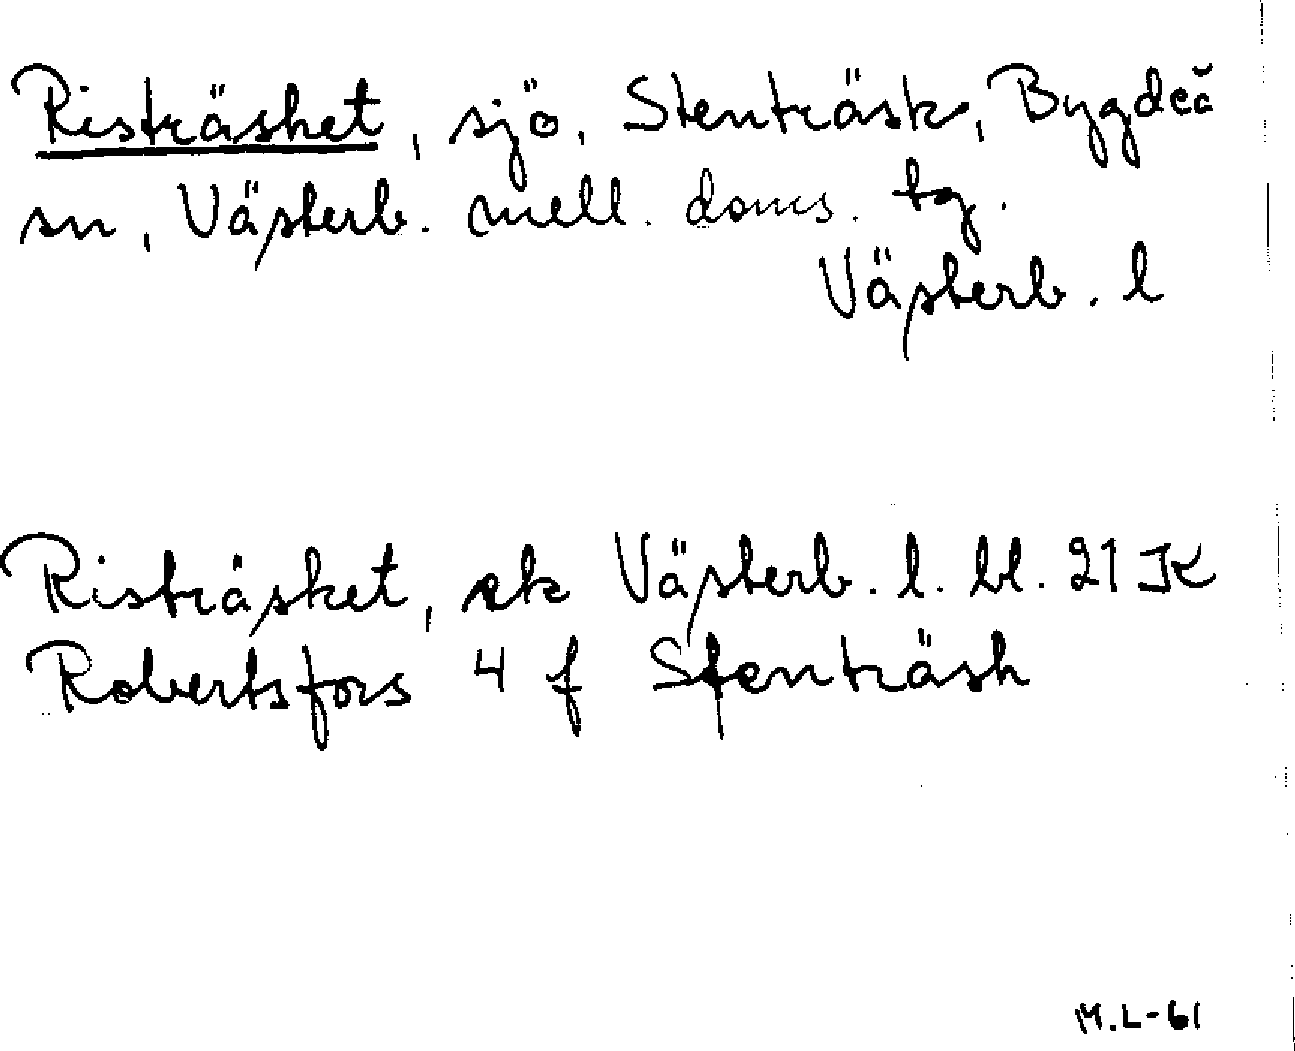 Risträsket, sjö, Stenträsk, Bygdeå
sn, Västerb. mell. doms. tg.
Västerb. l
Risträsket, ek Västerb. l. bl. 21 JK
Robertsfors 4 f Stenträsk
M.L-61